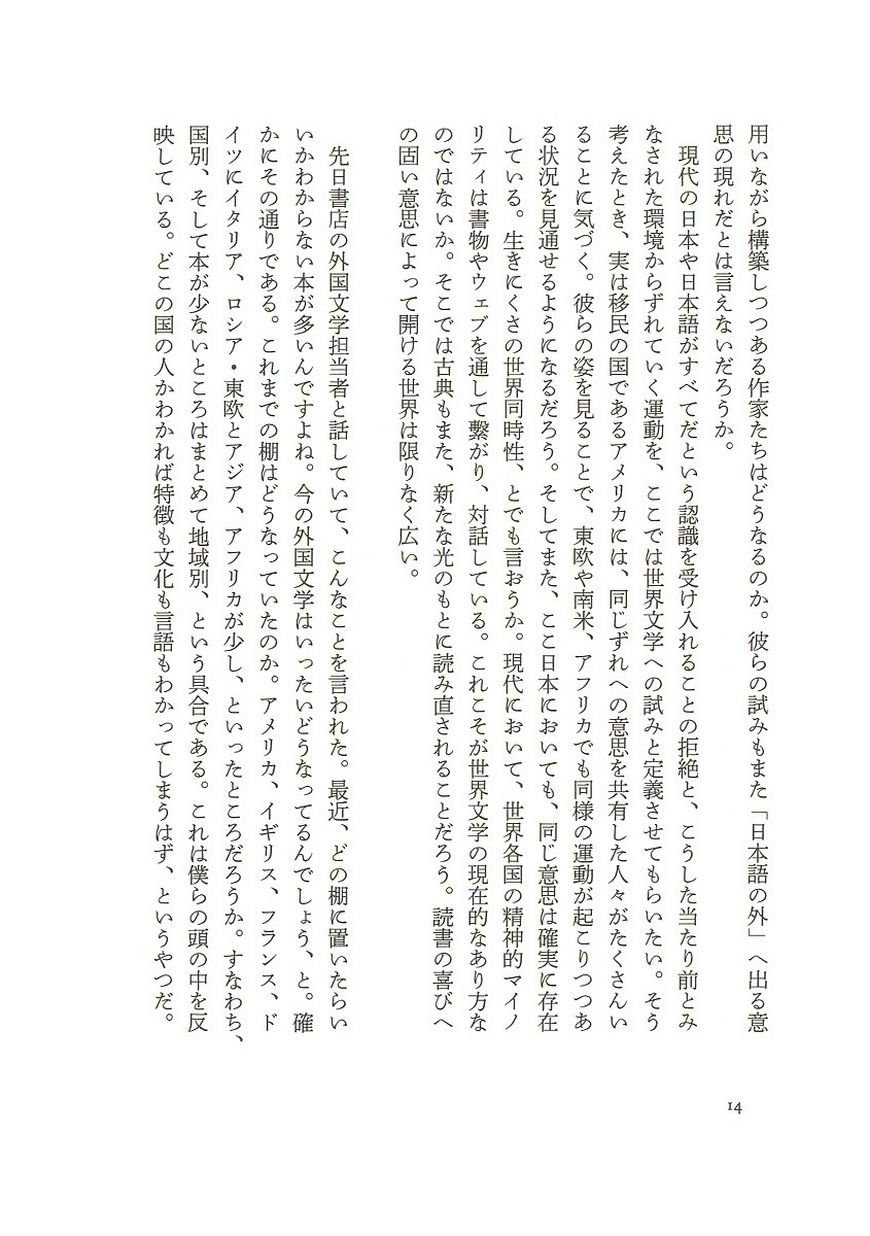 用いながら構築しつつある作家たちはどうなるのか。彼らの試みもまた「日本語の外」へ出る意
思の現れだとは言えないだろうか。
現代の日本や日本語がすべてだという認識を受け入れることの拒絶と、こうした当たり前とみ
なされた環境からずれていく運動を、ここでは世界文学への試みと定義させてもらいたい。そう
考えたとき、実は移民の国であるアメリカには、同じずれへの意思を共有した人々がたくさんい
ることに気づく。彼らの姿を見ることで、東欧や南米、アフリカでも同様の運動が起こりつつあ
る状況を見通せるようになるだろう。そしてまた、ここ日本においても、同じ意思は確実に存在
している。生きにくさの世界同時性、とでも言おうか。現代において、世界各国の精神的マイノ
リティは書物やウェブを通して繋がり、対話している。これこそが世界文学の現在的なあり方な
のではないか。そこでは古典もまた、新たな光のもとに読み直されることだろう。読書の喜びへ
の固い意思によって開ける世界は限りなく広い。
先日書店の外国文学担当者と話していて、こんなことを言われた。最近、どの棚に置いたらい
いかわからない本が多いんですよね。今の外国文学はいったいどうなってるんでしょう、と。確
かにその通りである。これまでの棚はどうなっていたのか。アメリカ、イギリス、フランス、ド
イツにイタリア、ロシア・東欧とアジア、アフリカが少し、といったところだろうか。すなわち、
国別、そして本が少ないところはまとめて地域別、という具合である。これは僕らの頭の中を反
映している。どこの国の人かわかれば特徴も文化も言語もわかってしまうはず、というやつだ。
14